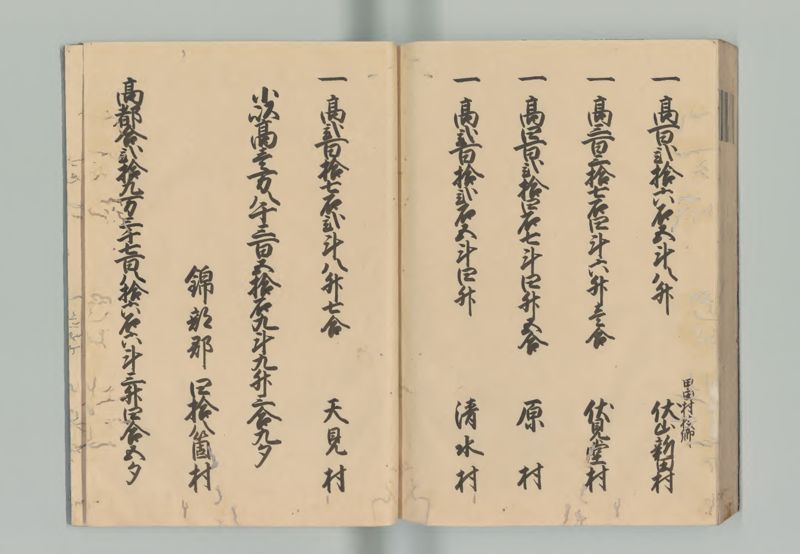 一高百弐拾六石五斗八升 甲田村枝郷 伏山新田村
一高三百三拾七石四斗六升壱合 伏見堂村
一高四百弐拾四石七斗四升五合 原村
一高弐百拾弐石五斗四升 清水村
一高弐百拾七石弐斗八升七合 天見村
小以高壱万八千三百五拾石九斗九升三合九夕
錦部郡 四拾八箇村
高都合弐拾九万三千七百八拾六石六斗三升四合五夕